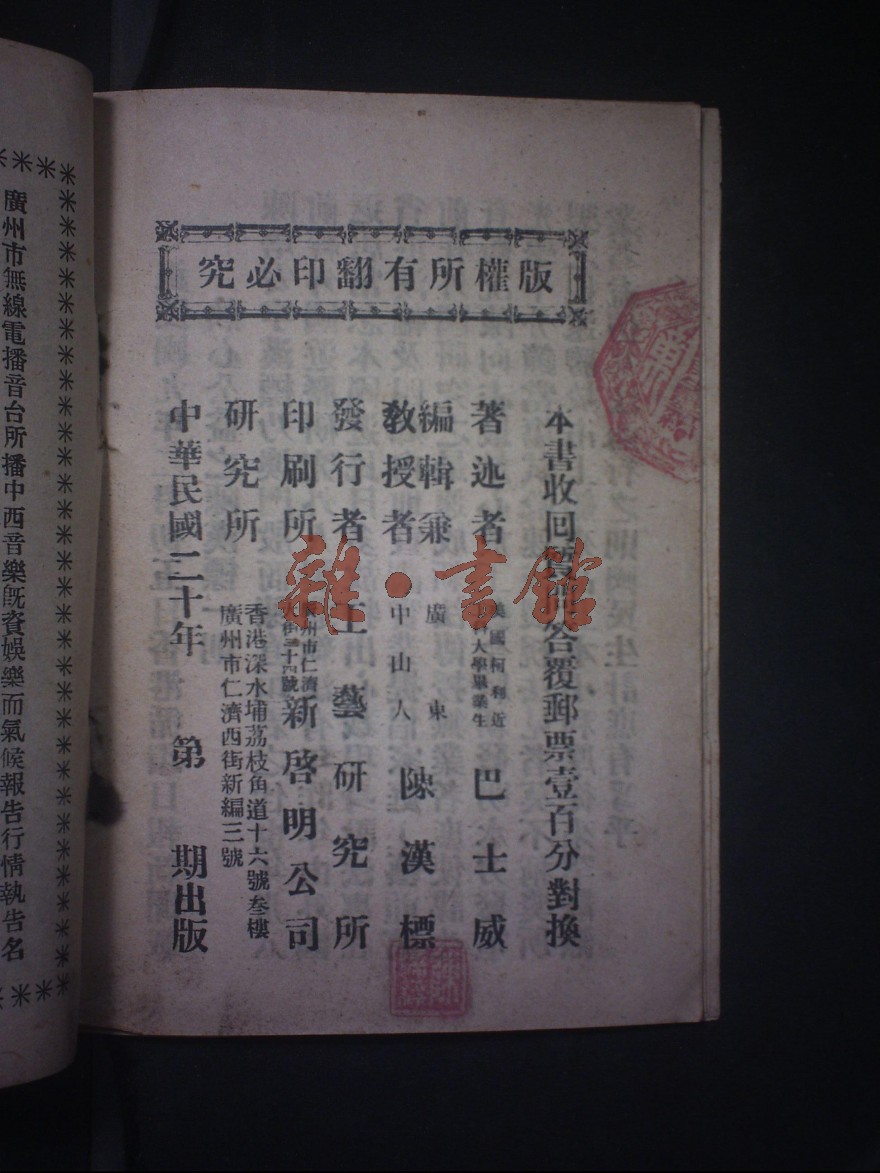 版權所有翻印必究
本書收回答覆郵票壹百分對換
著述者
國柯利近
大學畢業生
巴士威
編輯兼
教授者
廣東
中山人
陳漢標
發行者
工藝研究所
印刷所
州市仁濟
大街三十四號
新啓明公司
研究所
香港深水埔荔枝角道十六號叁樓
廣州市仁濟西街新編三號
中華民國二十年 第 期出版
廣州市無線電播音台所播中西音樂既資娛樂而氣候報告行情執告名
雜·書館